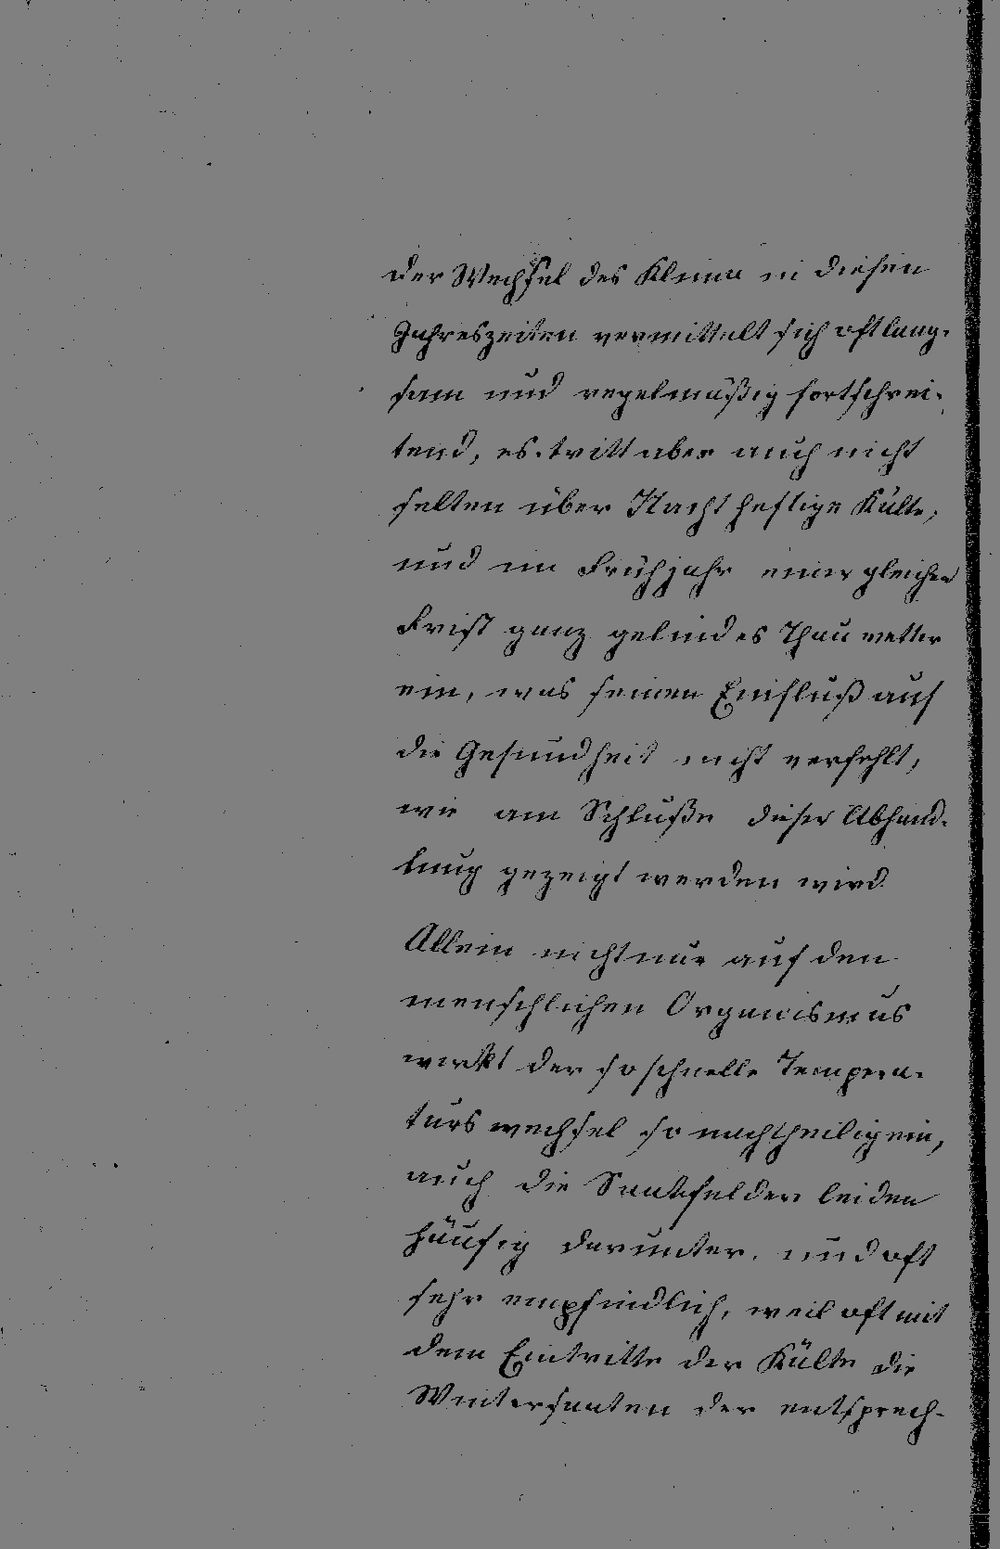 der Wechsel des Klima in diesen
Jahreszeiten vermittelt sich oft lang-
sam und regelmäßig fortschrei-
tend, es tritt aber auch nicht
selten über Nacht heftige Kälte,
und im Frühjahr einer gleichen
Frist ganz gelindes Thauwetter
ein, was seinen Einfluß auf
die Gesundheit nicht verfehlt,
wie am Schluße dieser Abhand-
lung gezeigt werden wird
Allein nicht nur auf den
menschlichen Organismus
wirkt der so schnelle Tempera-
turswechsel so nachtheilig ein,
auch die Saatfelder leiden
häufig darunter, und oft
sehr empfindlich, weil oft mit
dem Eintritte der Kälte die
Wintersaaten der entsprech-